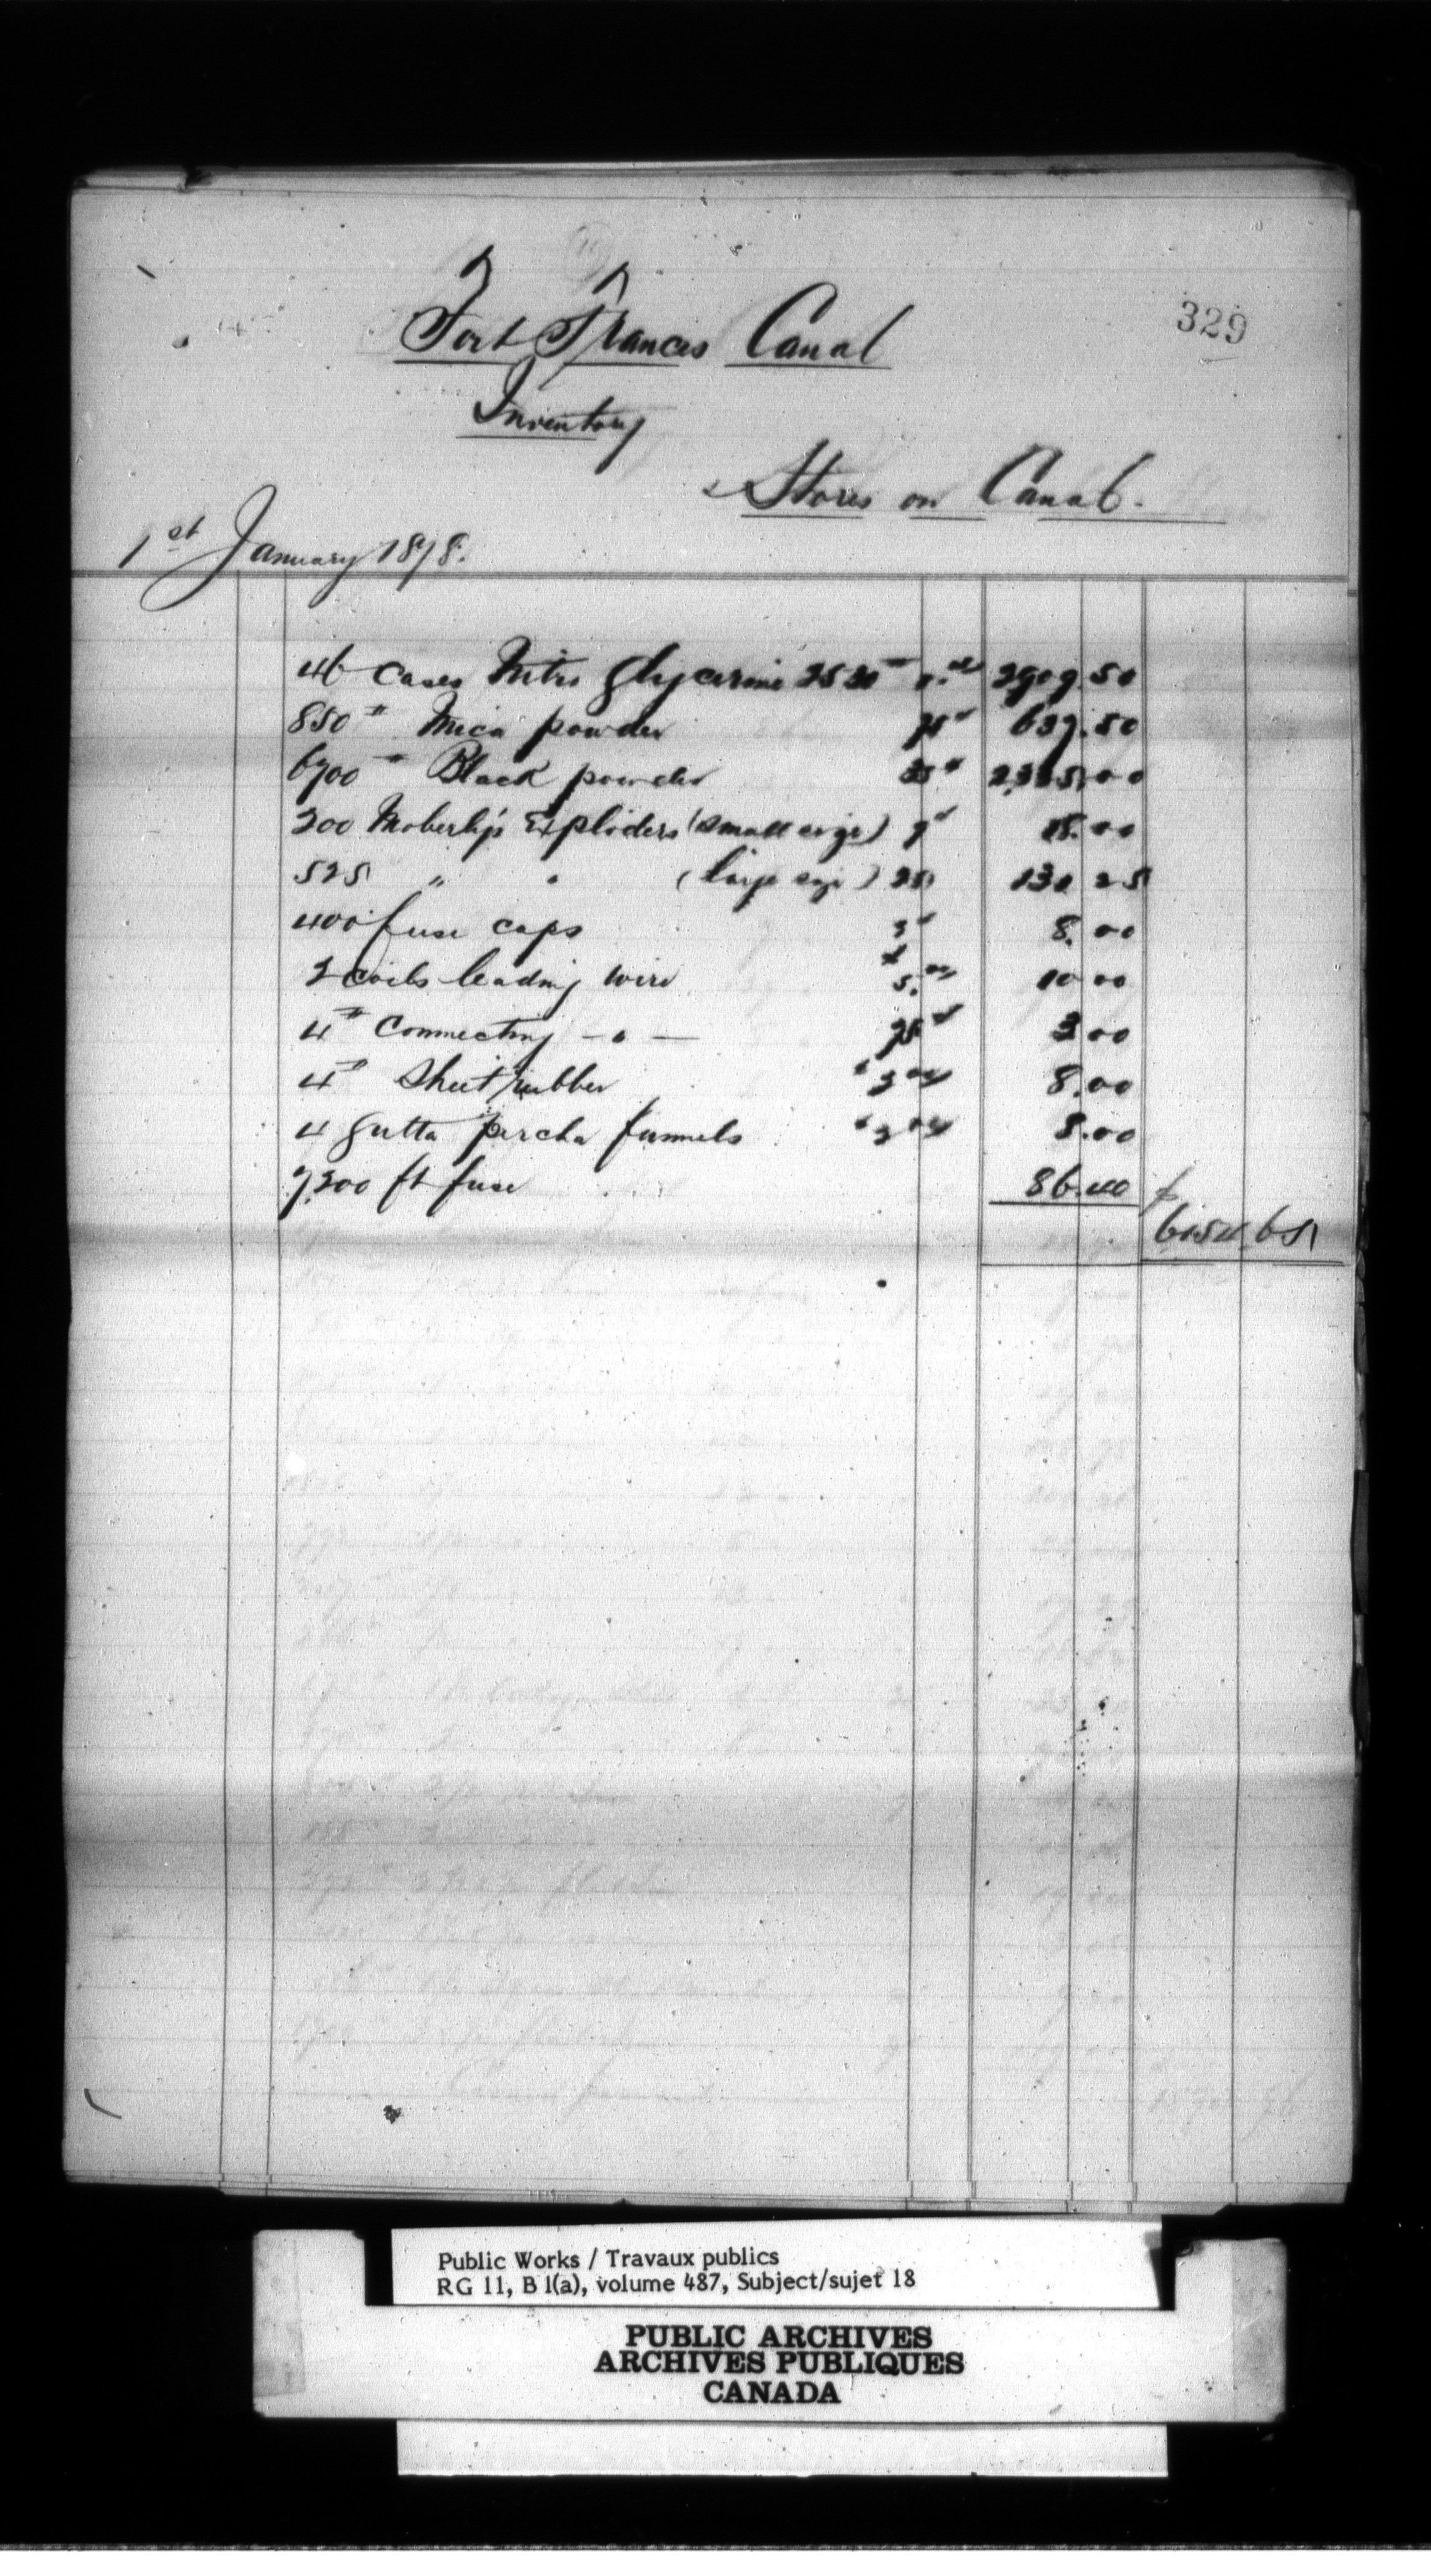 329
Fort Frances Canal
Inventory
Stores on Canal.
1st January 1878.
46 Cases Nitro Glycerine 2530 2909.50
850 # Mica powder 75 637.50
6700 # Black powder 35 2,345.00
200 Moberly's Exploders (small size) 9 18.00
525 " " (large size) 25 130 25
400 fuse caps 8.00
2 coils leading wire $ 5.00 10 00
4 # Connecting - " - 75 3 00
4 # Sheet rubber " 2 00 8.00
4 Gutta percha funnels " 2 00 8.00
7,200 ft fuse 86.40
$ 6154 65
Public Works / Travaux publics
RG 11, B 1(a), volume 487, Subject/sujet 18
PUBLIC ARCHIVES
ARCHIVES PUBLIQUES
CANADA